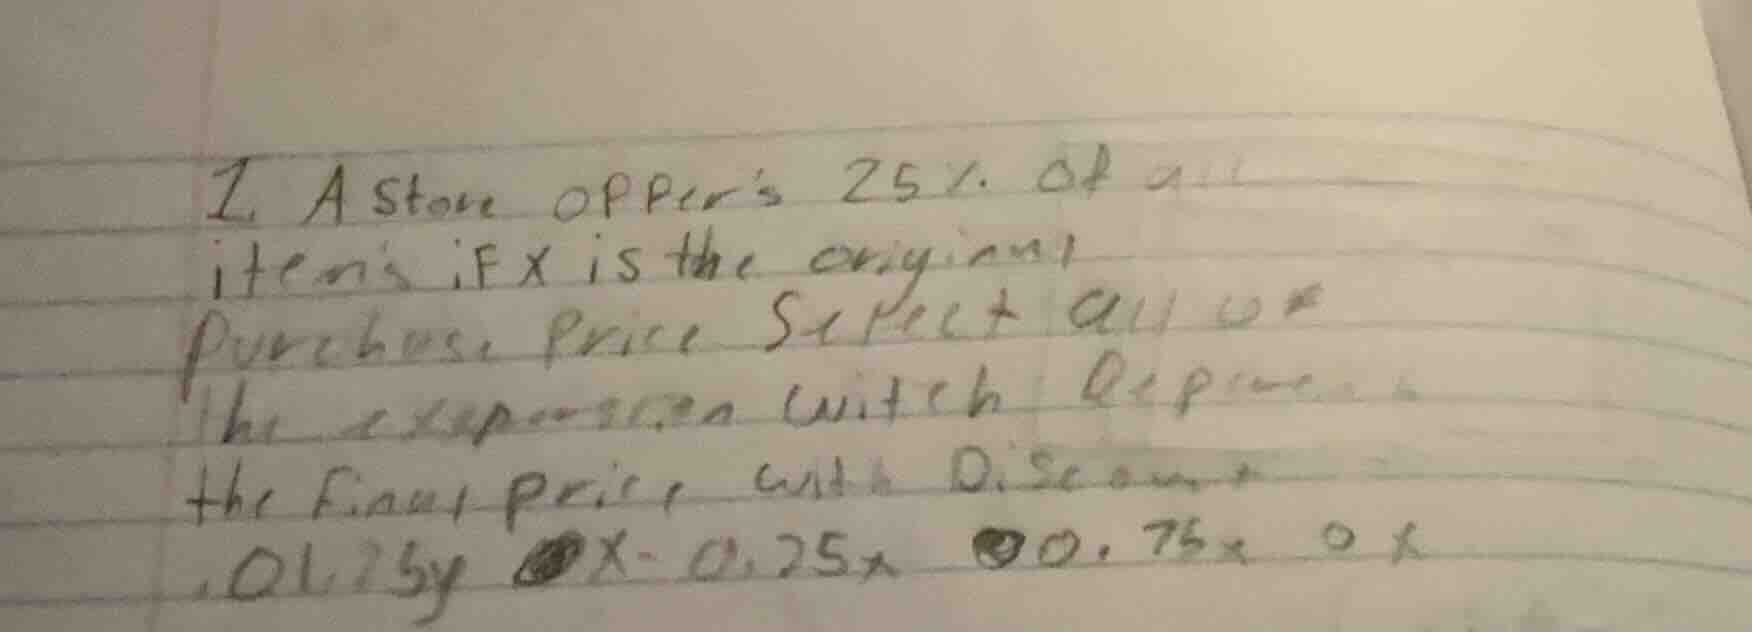 1. A store opper's 25% of all
item's if x is the original
purchase price Select all of
the witch
the final price with Discount
x - 0.25x 0.75x o x